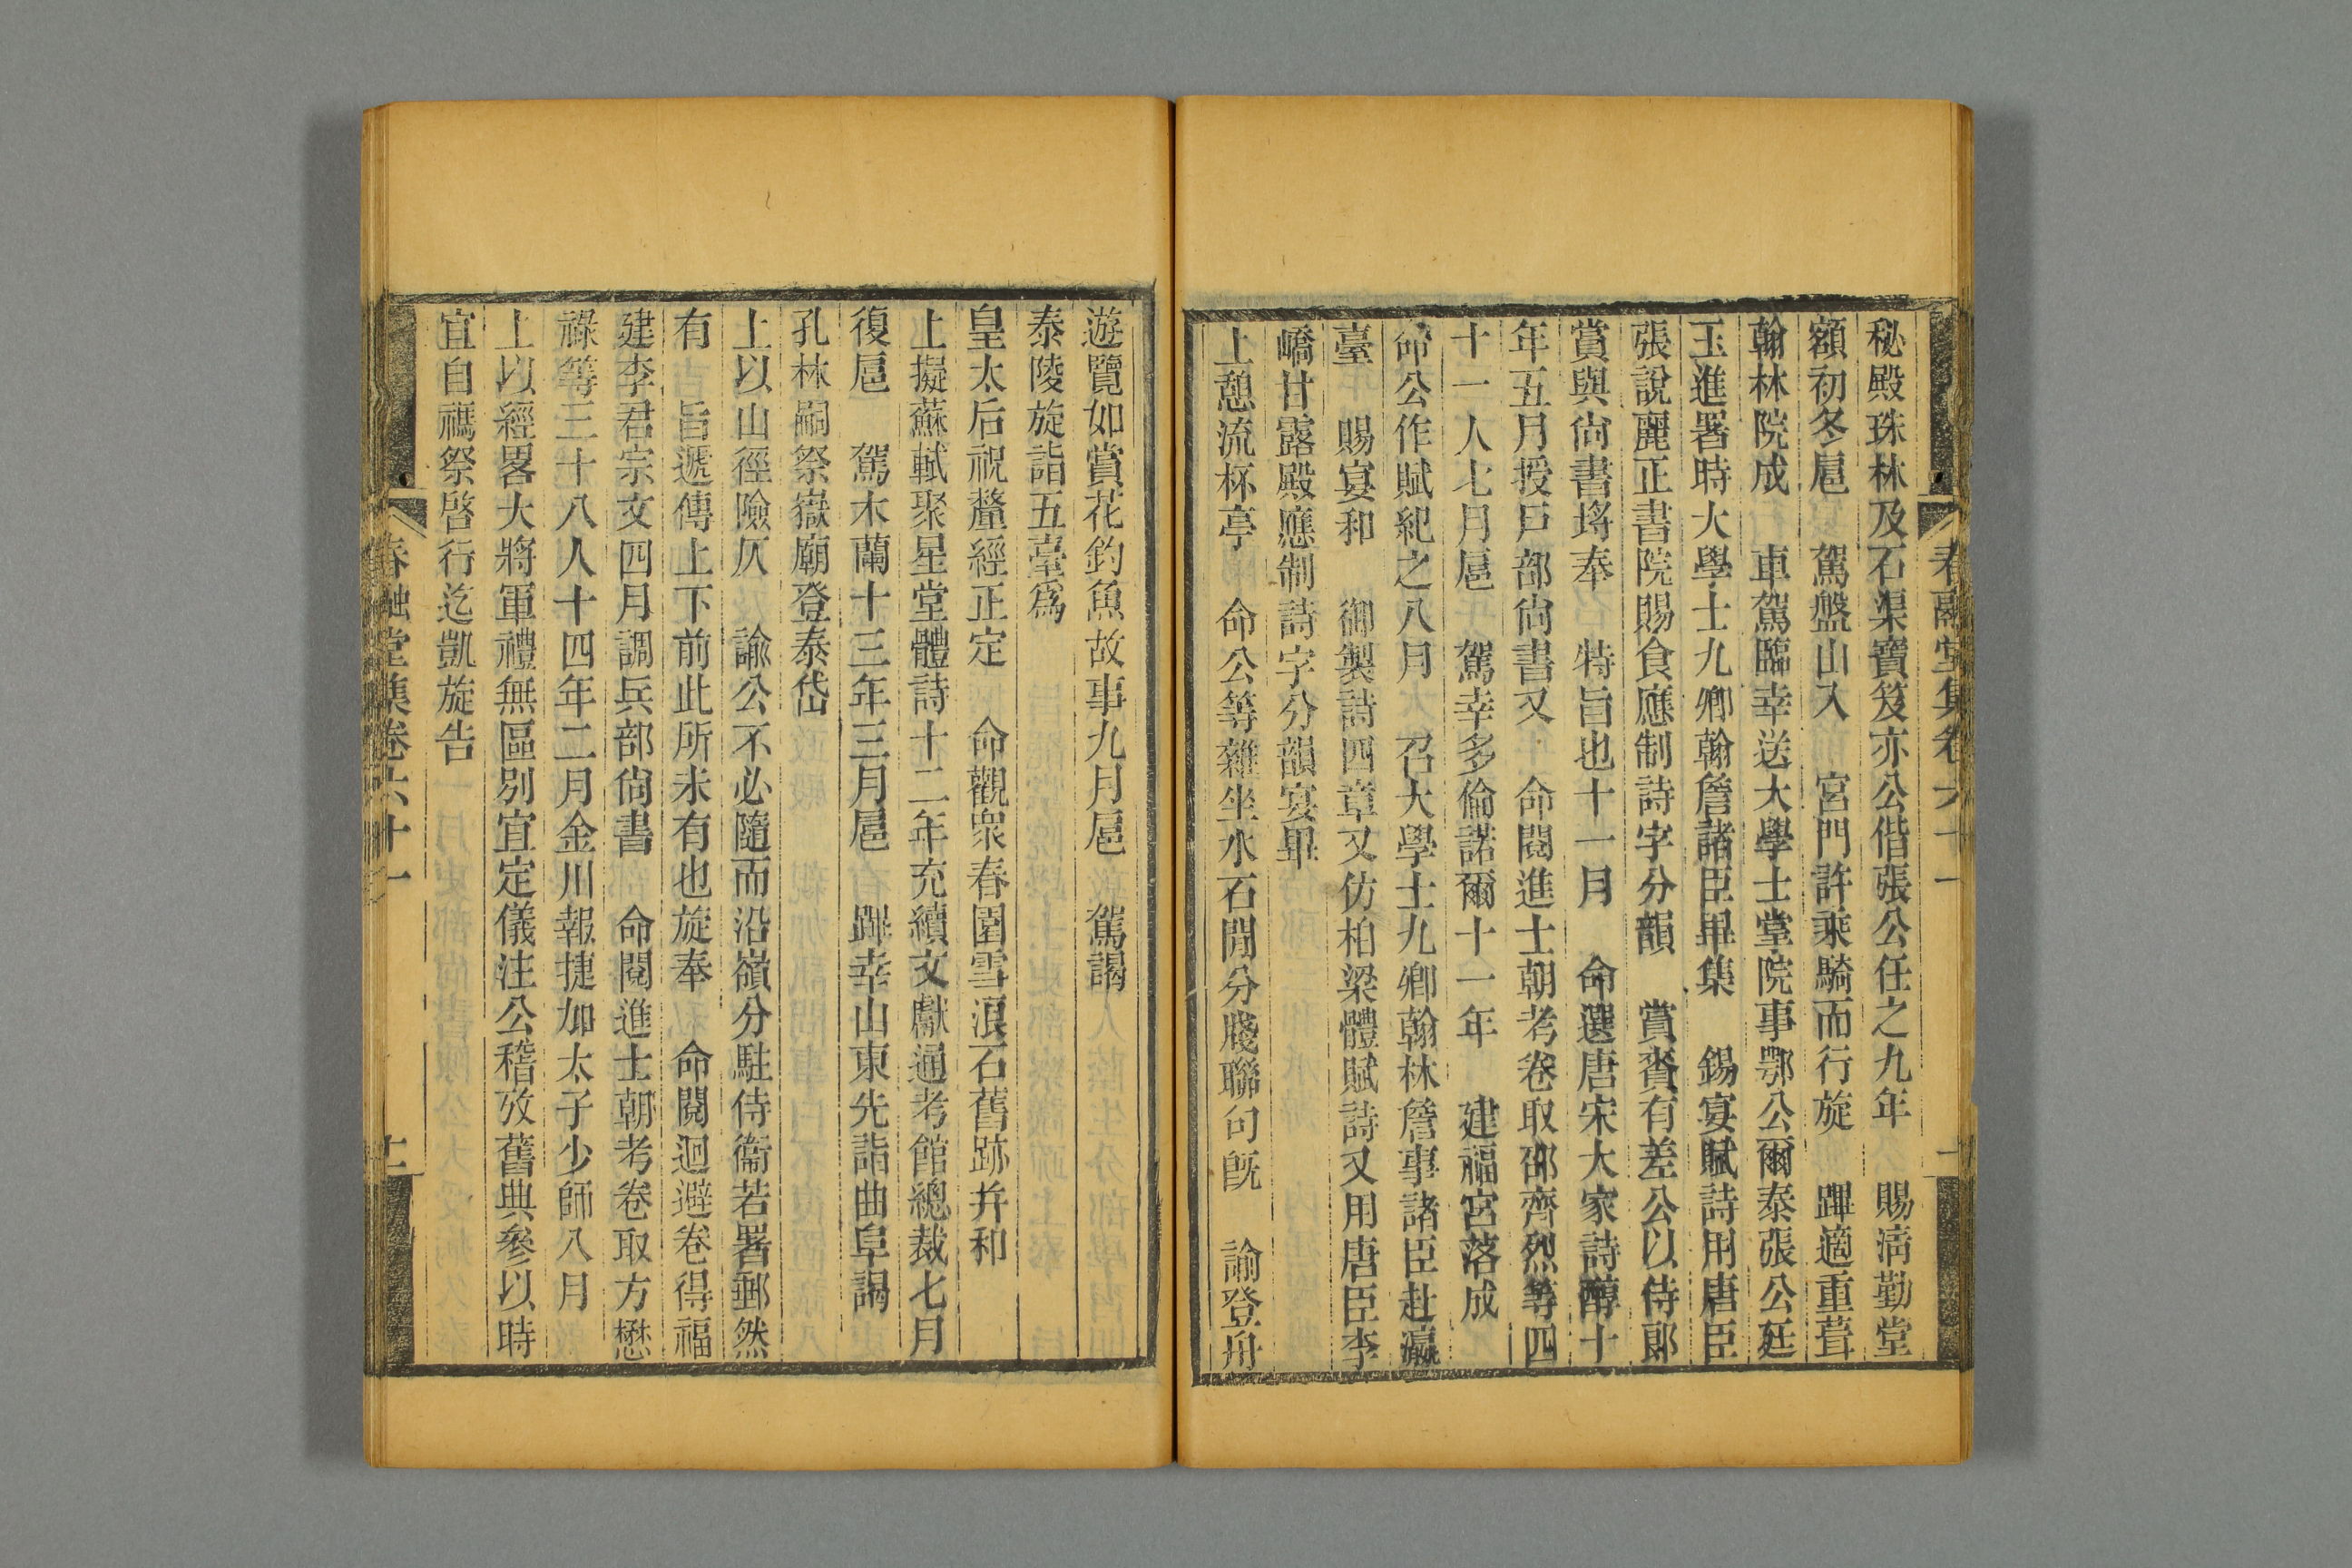 春融堂集卷六十一
秘殿珠林及石渠寶笈亦公偕張公任之九年　賜滿勤堂
額初冬扈　駕盤山入　宮門許乘騎而行旋　蹕適重葺
翰林院成　車駕臨幸送大學士堂院事鄂公爾泰張公廷
玉進署時大學士九卿翰詹諸臣畢集　錫宴賦詩用唐臣
張說麗正書院賜食應制詩字分韻　賞賚有差公以侍郎
賞與尙書埓奉　特旨也十一月　命選唐宋大家詩醇十
年五月授戸部尙書又　命閱進士朝考卷取邵齊烈等四
十一人七月扈　駕幸多倫諾爾十一年　建福宮落成
命公作賦紀之八月　召大學士九卿翰林詹事諸臣赴瀛
臺　賜宴和　御製詩四章又仿柏梁體賦詩又用唐臣李
嶠甘露殿應制詩字分韻宴畢
上憩流杯亭　命公等雜坐水石間分牋聯句旣　諭登舟
遊覽如賞花釣魚故事九月扈　駕謁
泰陵旋詣五臺爲
皇太后祝釐經正定　命觀衆春園雪浪石舊跡幷和
上擬蘇軾聚星堂體詩十二年充續文獻通考館總裁七月
復扈　駕木蘭十三年三月扈　蹕幸山東先詣曲阜謁
孔林嗣祭嶽廟登泰岱
上以山徑險仄　諭公不必隨而沿嶺分駐侍衞若署郵然
有　旨遞傳上下前此所未有也旋奉　命閱迴避卷得福
建李君宗文四月調兵部尙書　命閱進士朝考卷取方懋
祿等三十八人十四年二月金川報捷加太子少師八月
上以經畧大將軍禮無區別宜定儀注公稽攷舊典參以時
宜自禡祭啓行迄凱旋告
春融堂集卷六十一
十一